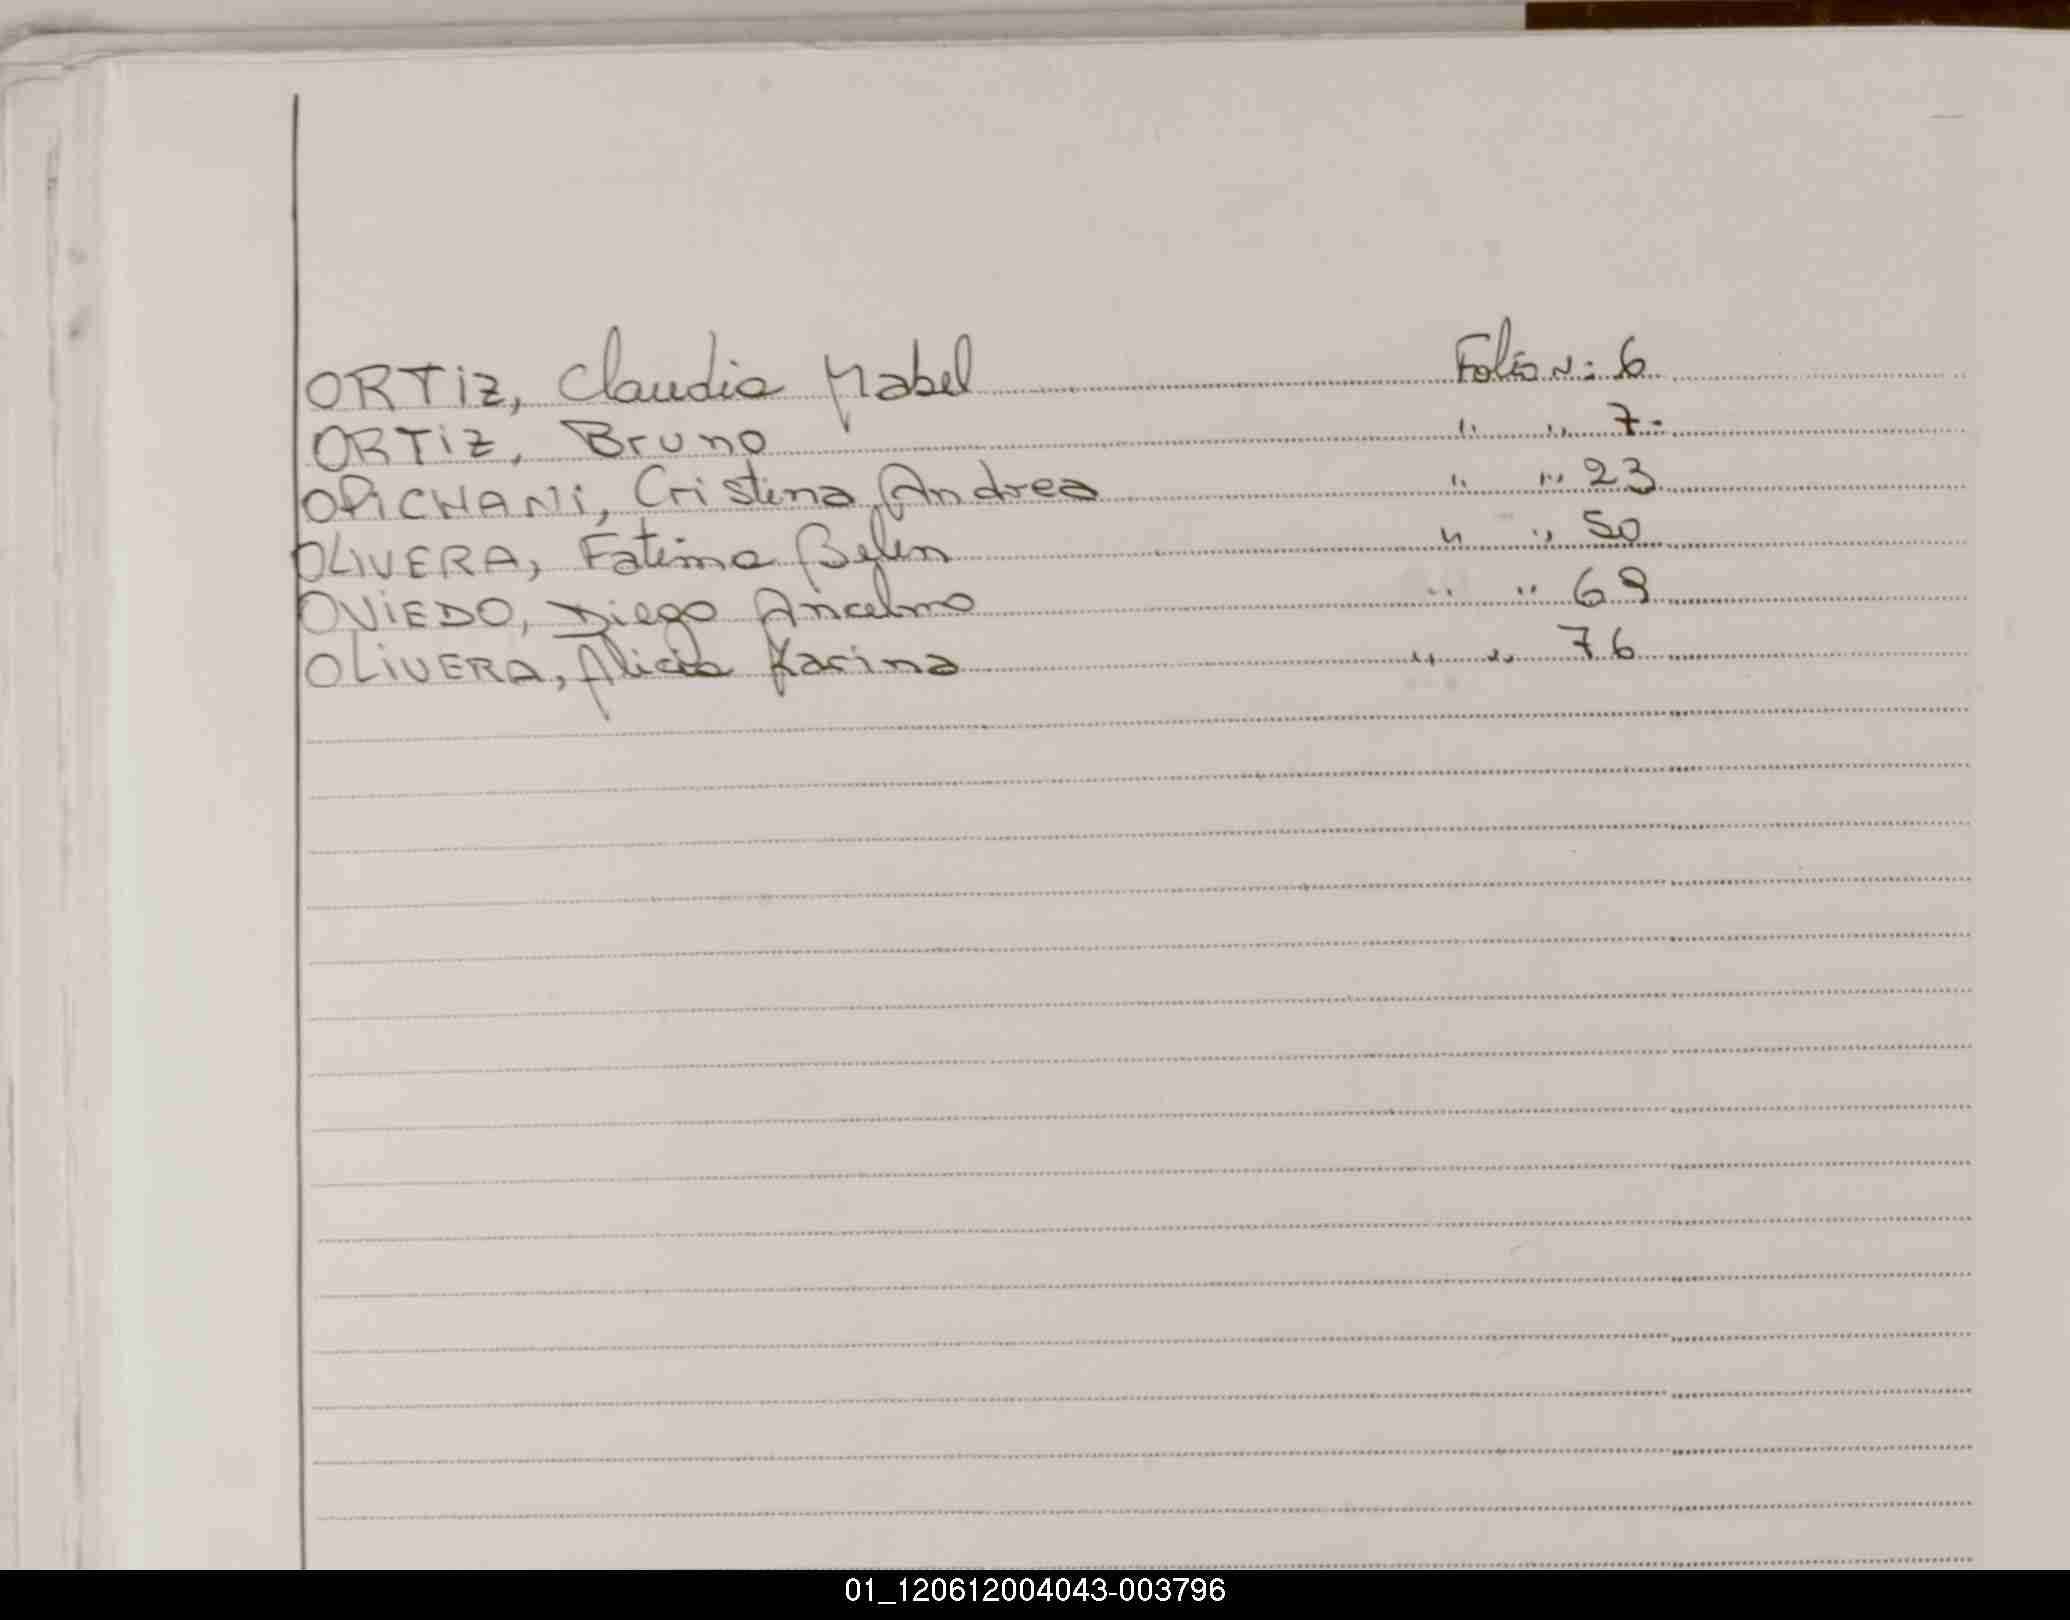 ORTiZ, Claudia Mabel Folio N: 6
ORTiZ, Bruno " " 7-
OPiCHANi, Cristina Andrea " " 23
OLIVERA, Fatima Belen " " 50
OViEDO, Diego Ancelmo " " 69
OLiVERA, Alicia Karina " " 76
01_120612004043-003796